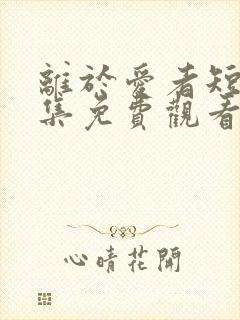 離於愛者短
集免費觀看
心晴花開